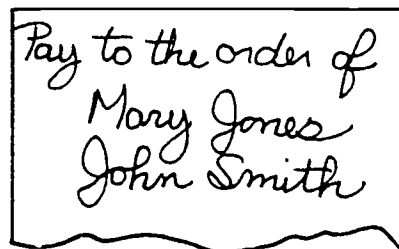 Pay to the order of
Mary Jones
John Smith